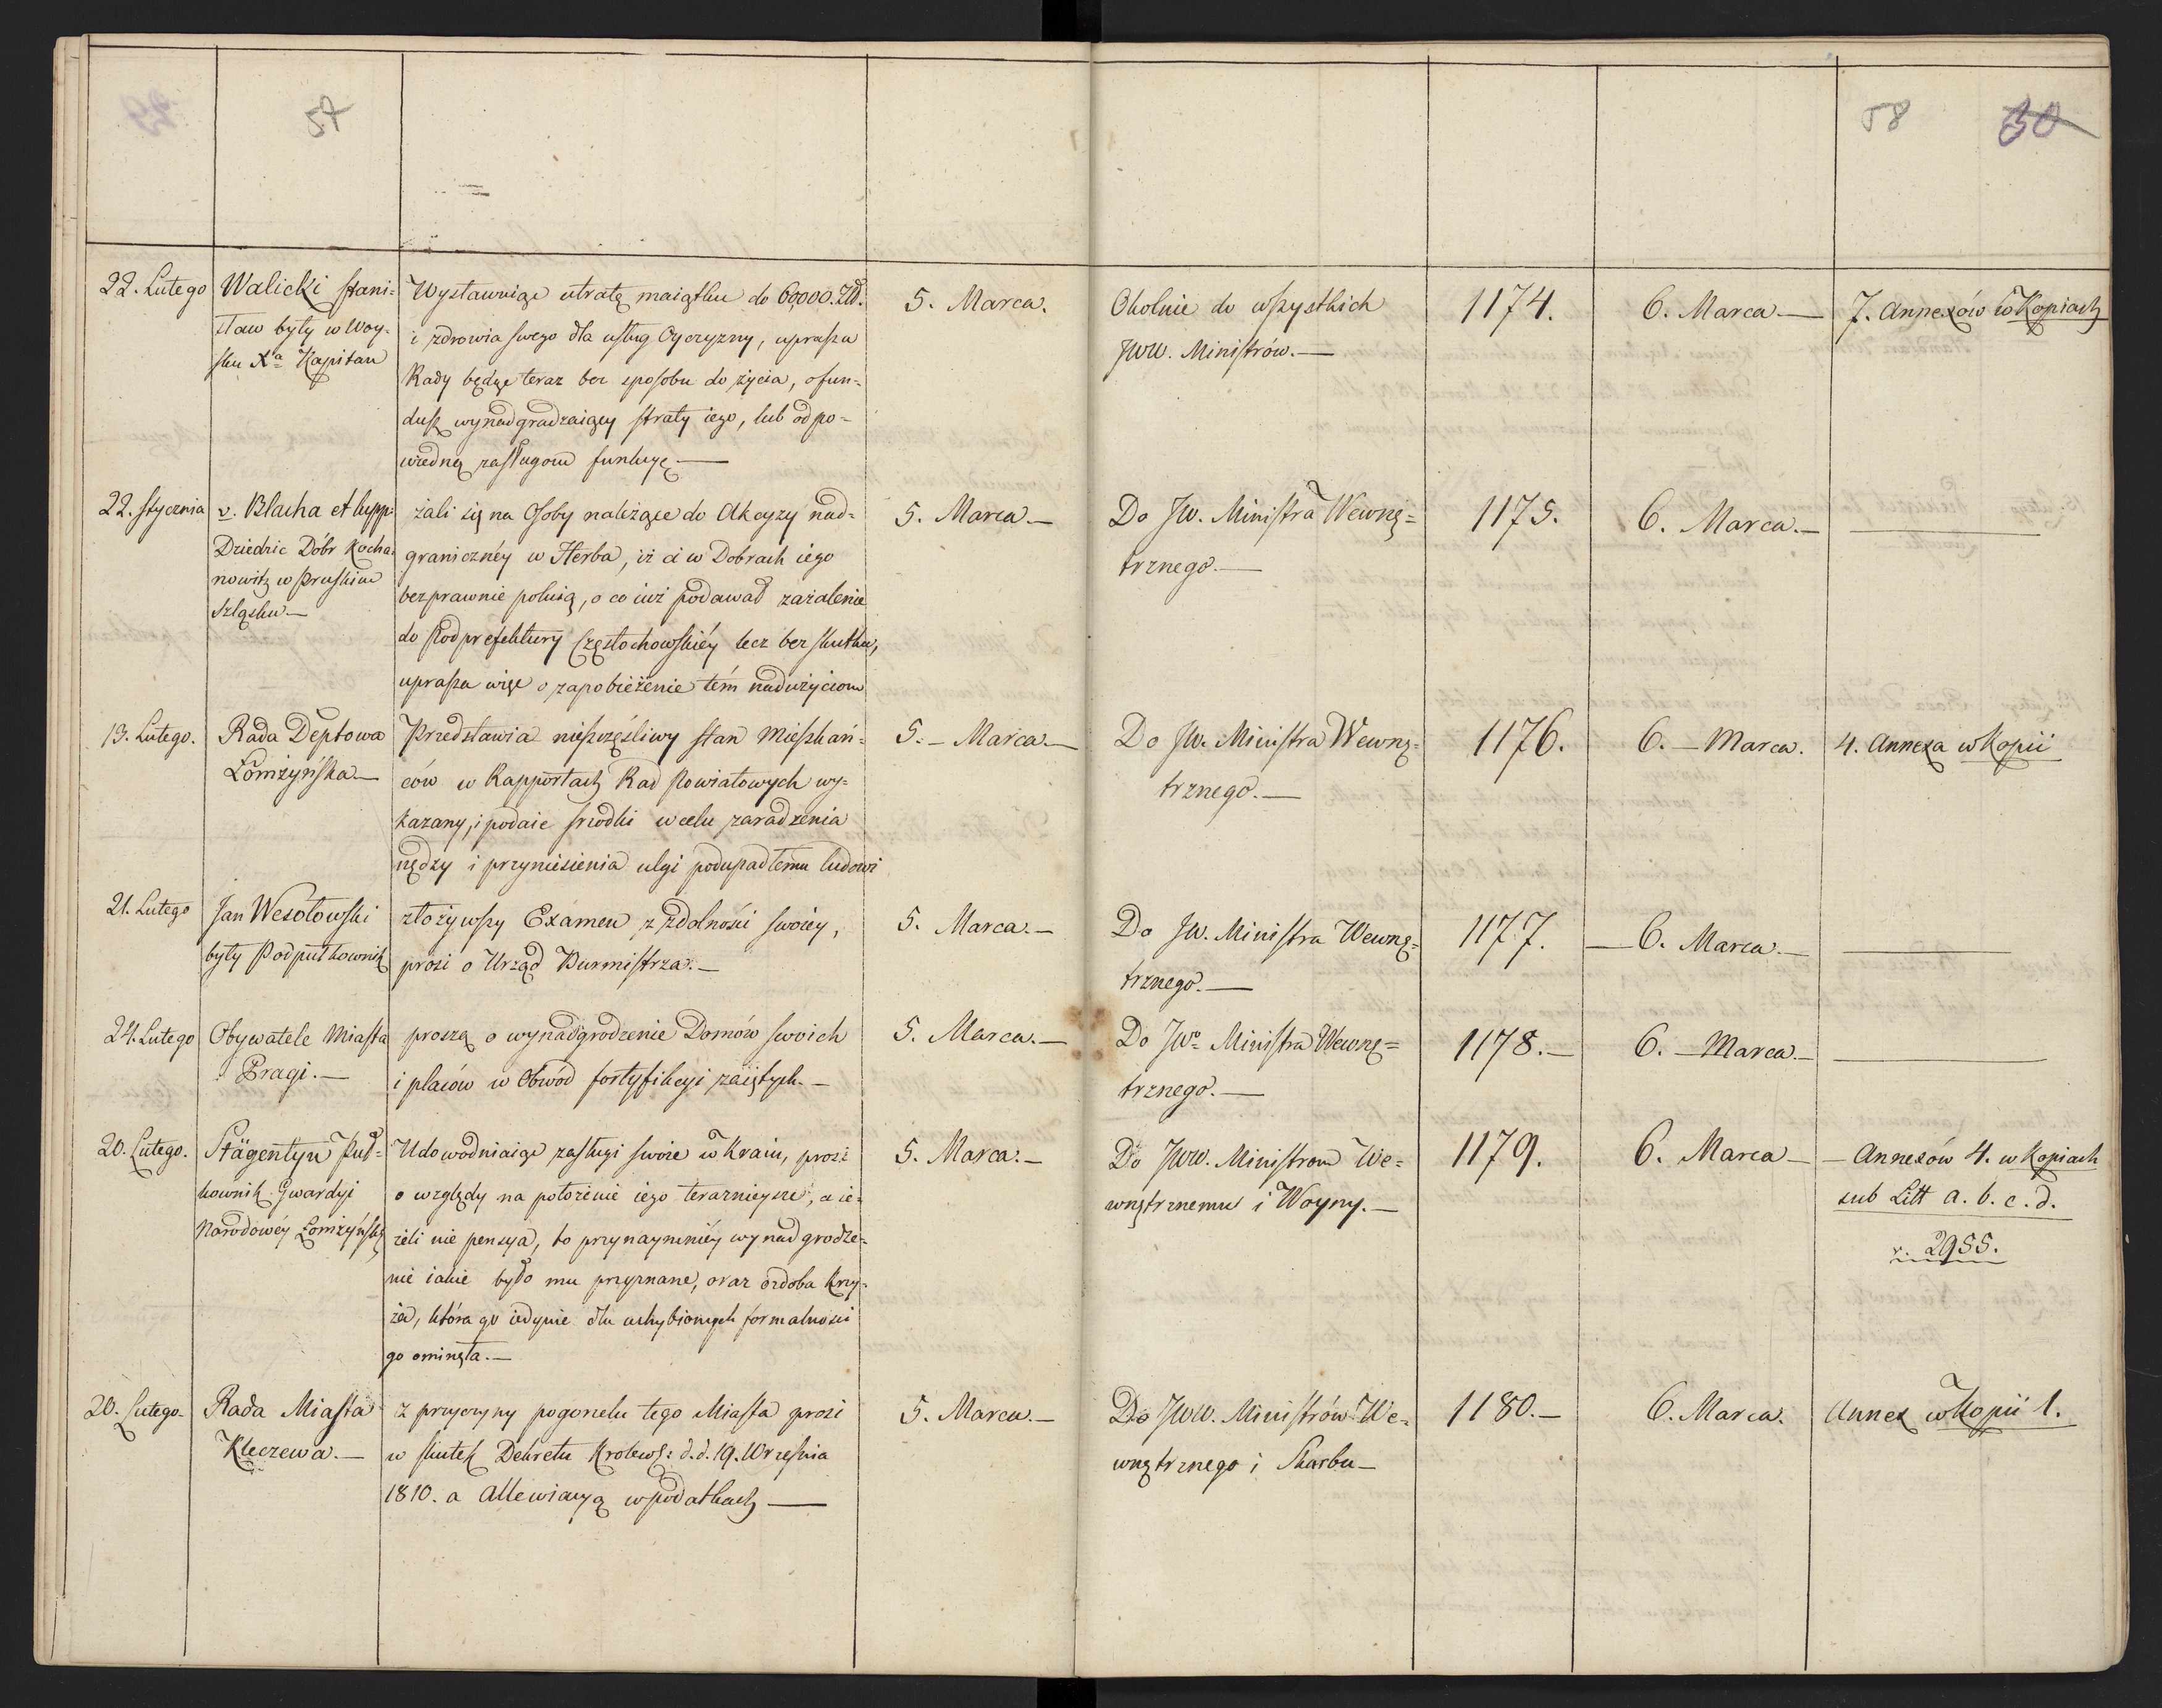 57
58 30
22. Lutego
Walicki Stani=
sław były w Woy=
sku Xa Kapitan
Wystawuiąc utratę maiątku do 60,000. Złł.
i zdrowia swego dla usług Oyczyzny, uprasza
Rady będąc teraz bez sposobu do życia, o fun=
dusz wynadgradzaiący straty iego, lub odpo=
wiednią zasługom funkcyę —
5. Marca.
Okolnie do wszystkich
JWW. Ministrów. —
1174.
6. Marca —
7. Annexów w Kopiach
22. Stycznia
v. Blacha et Lupp:
Dziedzic Dóbr Kocha=
nowitz w Pruskim
Szląsku —
żali się na Osoby należące do Akcyzy nad=
granicznéy w Herba, iż ci w Dobrach iego
bezprawnie polują, o co iuż podawał zażalenie
do Podprefektury Częstochowskiéy lecz bez skutku,
uprasza więc o zapobieżenie tém nadużyciom
5. Marca —
Do JW. Ministra Wewnę=
trznego. —
1175.
6. Marca. —
13. Lutego.
Rada Deptowa
Łomżyńska —
Przedstawia nieszczęśliwy stan Mieszkań=
ców w Rapportach Rad Powiatowych wy=
kazany, i podaie srzodki w celu zaradzenia
nędzy i przyniesienia ulgi podupadłemu ludowi
5. — Marca. —
Do JW. Ministra Wewnę=
trznego. —
1176.
6. — Marca.
4. Annexa w Kopii
21. Lutego
Jan Wesołowski
były Podpułkownik
złożywszy Examen z zdolności swoiey,
prosi o Urząd Burmistrza. —
5. Marca. —
Do JW. Ministra Wewnę=
trznego. —
1177.
— 6. Marca. —
24. Lutego
Obywatele Miasta
Pragi. —
proszą o wynadgrodzenie Domów swoich
i placów w Obwód fortyfikcyi zaiętych. —
5. Marca. —
Do JWo Ministra Wewnę=
trznego. —
1178. —
6. — Marca. —
20. Lutego.
Stägentyn Puł=
kownik Gwardyi
Narodowéy Łomżyńskiy
Udowodniaiąc zasługi swoie w Kraiu, prosi
o względy na położenie iego teraznieysze, a ie=
żeli nie pensya, to przynaymniéy wynadgrodze=
nie iakie było mu przyznane, oraz ozdoba krzy=
ża, która go iedynie dla uchybionych formalności
go ominęła. —
5. Marca. —
Do JWW. Ministrom We=
wnętrznemu i Woyny. —
1179.
6. Marca —
— Annexów 4. w Kopiach
sub Litt a. b. c. d.
v. 2955.
20. Lutego.
Rada Miasta
Kleczewa. —
z przyczyny pogorzelu tego Miasta prosi
w skutek Dekretu Krolews: d. d. 19. Września
1810. a Allewiacyą w podatkach —
5. Marca. —
Do JWW. Ministrów We=
wnętrznego i Skarbu —
1180. —
6. Marca.
Annex w Kopii 1.